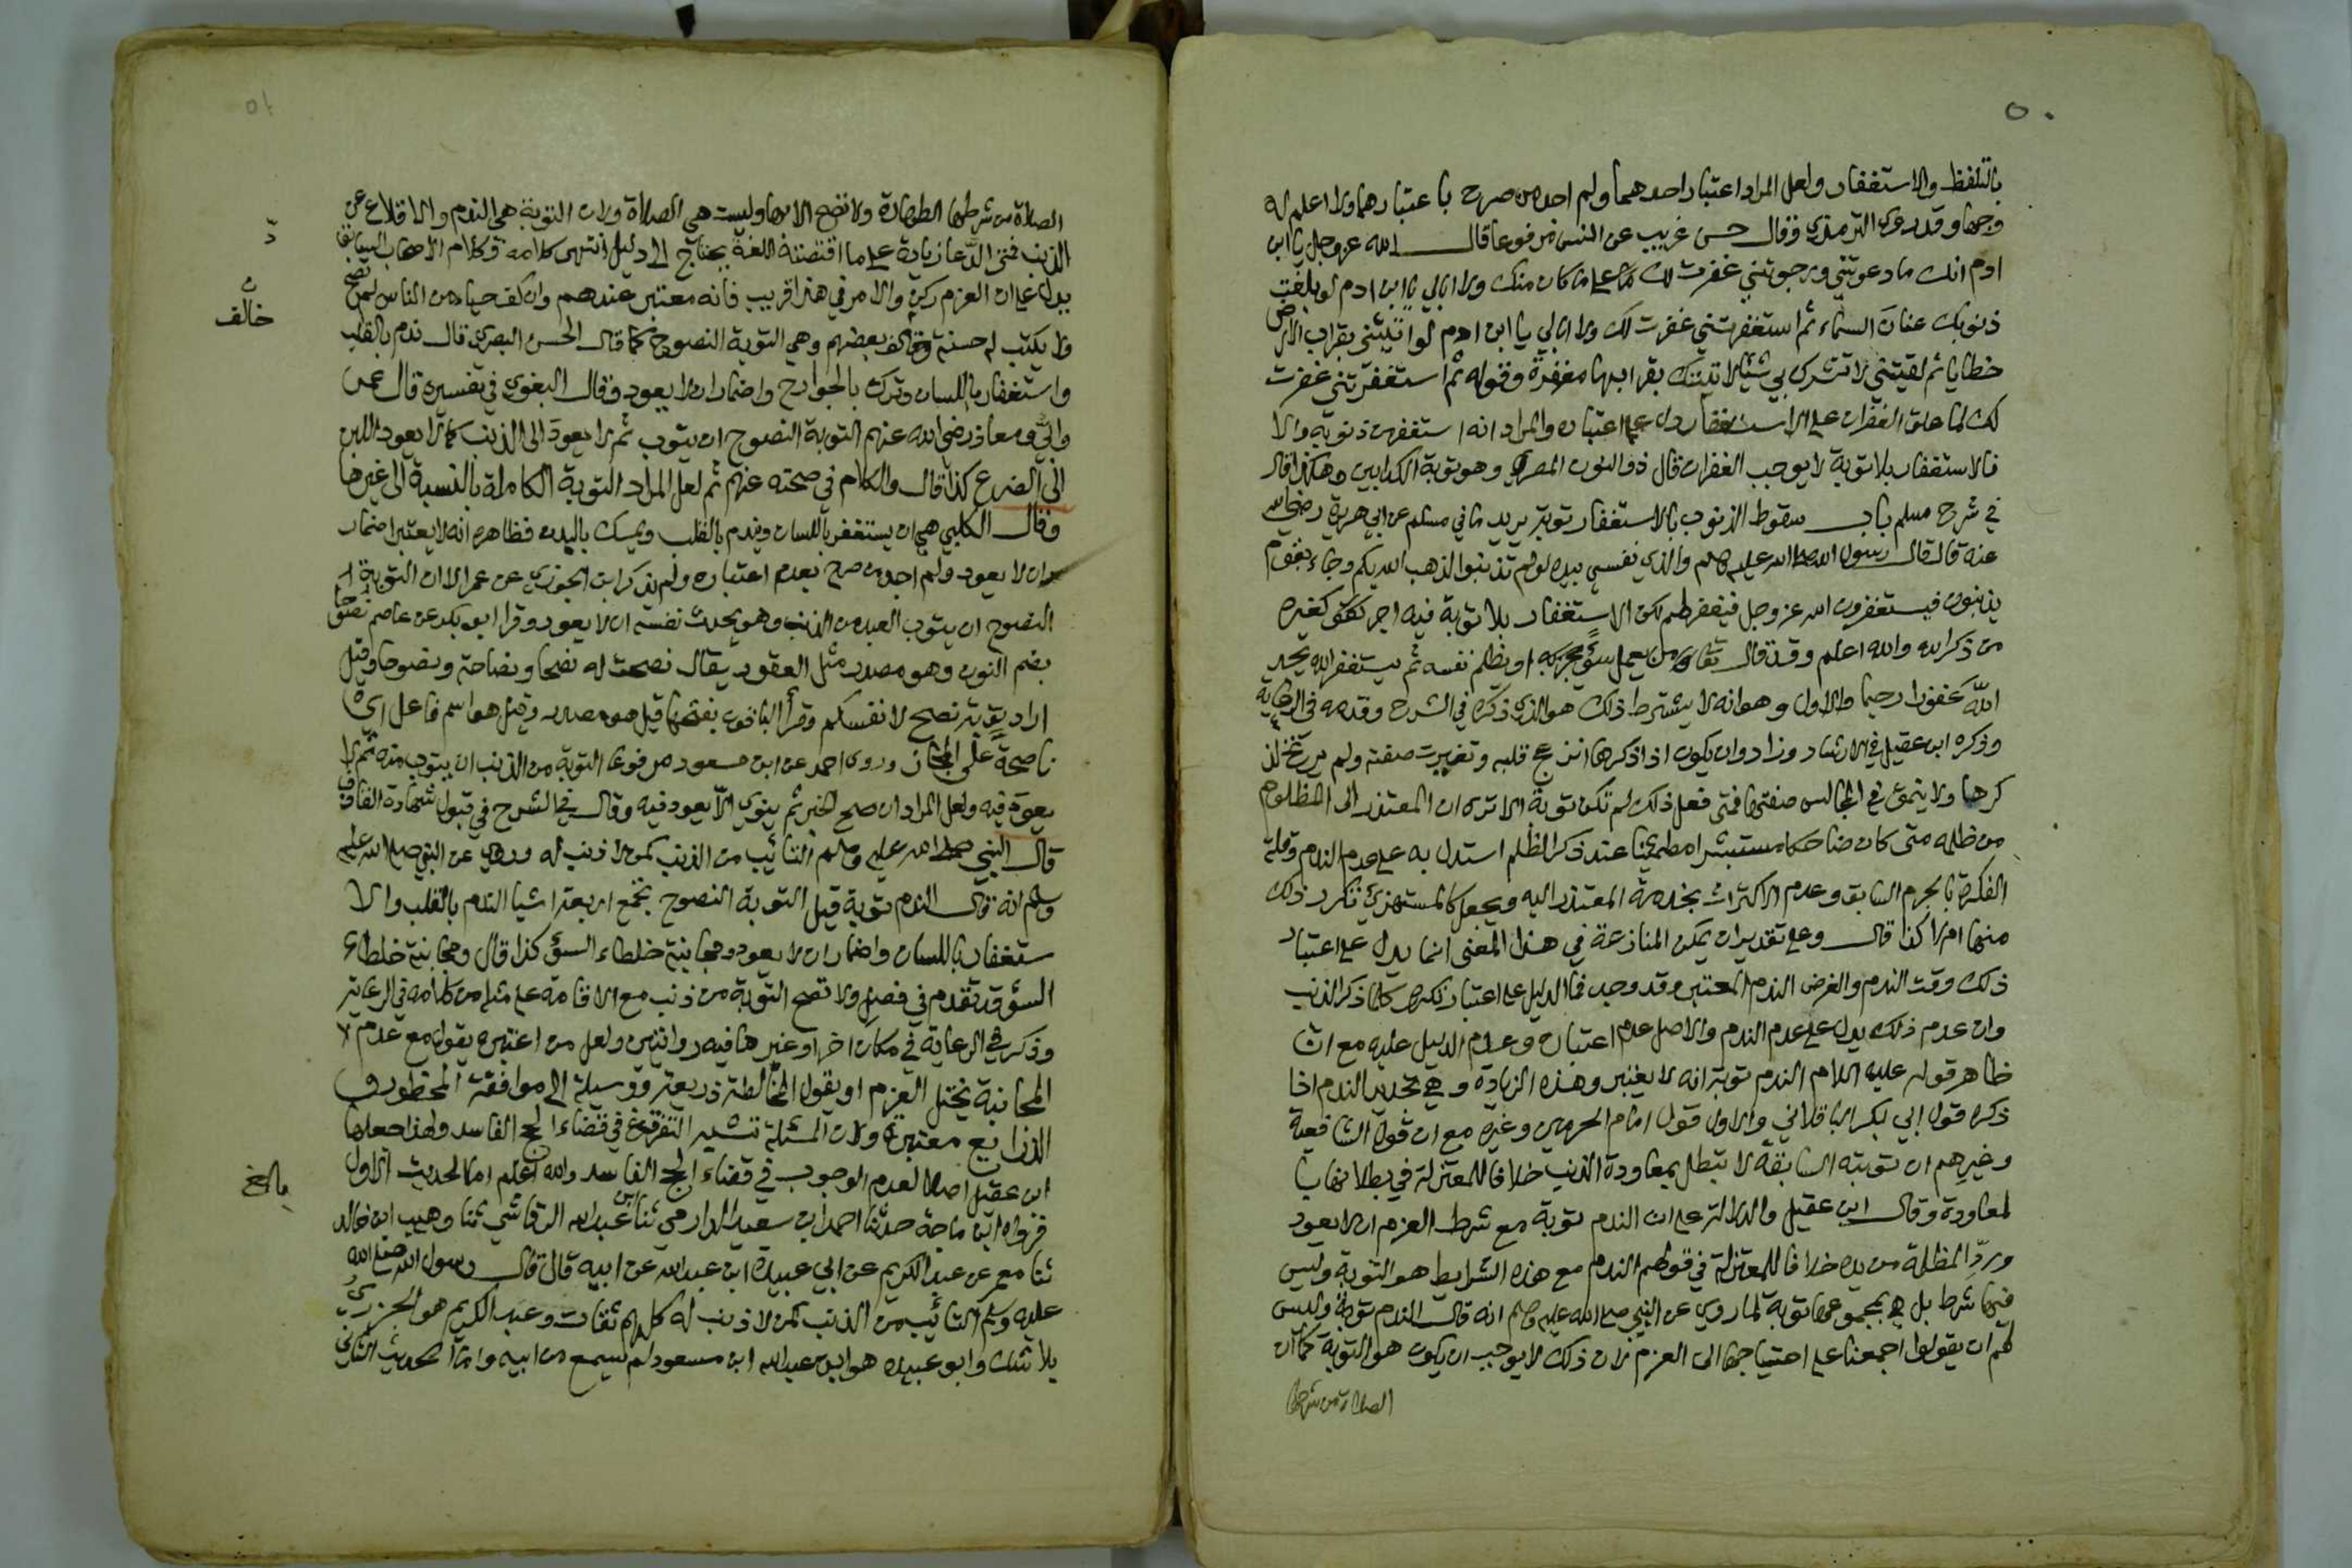 ٥٠
بالتلفظ والاستغفار ولعل المراد اعتبار احدهما ولم اجد من صرح باعتبارهما ولا اعلم له
وجها وقد روى الترمذي وقال حسن غريب عن انس مرفوعا قال الله عز وجل يا ابن
ادم انك ما دعوتني ورجوتني غفرت لك على ما كان منك ولا ابالي يا ابن ادم لو بلغت
ذنوبك عنان السماء ثم استغفرتني غفرت لك ولا ابالي يا ابن ادم لو اتيتني بقراب الارض
خطايا ثم لقيتني لا تشرك بي شيئا لاتيتك بقرابها مغفرة وقوله ثم استغفرتني غفرت
لك لما علق الغفران على الاستغفار دل على اعتباره والمراد انه استغفر من ذنوبه والا
فالاستغفار بلا توبة لا يوجب الغفران قال ذو النون المصري وهو توبة الكذابين وهكذا قال
في شرح مسلم باب سقوط الذنوب بالاستغفار توبة يريد ما في مسلم عن ابي هريرة رضي الله
عنه قال قال رسول الله صلى الله عليه وسلم والذي نفسي بيده لو لم تذنبوا لذهب الله بكم وجاء بقوم
يذنبون فيستغفرون الله عز وجل فيغفر لهم لكن الاستغفار بلا توبة فيه اجر كغيره
من ذكر الله والله اعلم وقد قال تعالى ومن يعمل سوءا او يظلم نفسه ثم يستغفر الله يجد
الله غفورا رحيما والاول وهو انه لا يشترط ذلك هو الذي ذكره في الشرح وقدمه في الرعاية
وذكره ابن عقيل في الارشاد وزاد وان يكون اذا ذكرها انزعج قلبه وتغيرت صفته ولم يرتح لذ
كرها ولا ينمق في المجالس صفتها فمتى فعل ذلك لم تكن توبة الا ترى ان المعتذر الى المظلوم
من ظلمه متى كان ضاحكا مستبشرا مطمئنا عند ذكر الظلم استدل به على عدم الندم وقلة
الفكرة بالجرم السابق وعدم الاكتراث بخدمة المعتذر اليه ويجعل كالمستهزئ تكرر ذلك
منها ام لا كذا قال وعلى تقدير ان تمكن المنازعة في هذا المعنى انما يدل على اعتبار
ذلك وقت الندم والغرض الندم المعتبر وقد وجد فما الدليل على اعتبار تكرره كلما ذكر الذنب
وان عدم ذلك يدل على عدم الندم والاصل عدم اعتباره وعدم الدليل عليه مع ان
ظاهر قوله عليه السلام الندم توبة انه لا يعتبر وهذه الزيادة وهي تجديد الندم اذا
ذكره قول ابي بكر الباقلاني والاول قول امام الحرمين وغيره مع ان قول الشافعية
وغيرهم ان توبته السابقة لا تبطل بمعاودة الذنب خلافا للمعتزلة في بطلانها با
لمعاودة وقال ابن عقيل والدلالة على ان الندم توبة مع شرط العزم ان لا يعود
ورد المظلمة من يده خلافا للمعتزلة في قولهم الندم مع هذه الشرايط هو التوبة وليس
فيها شرط بل هي بمجموعها توبة لما روي عن النبي صلى الله عليه وسلم انه قال الندم توبة وليس
لهم ان يقولوا اجمعنا على احتياجها الى العزم لان ذلك لا يوجب ان يكون هو التوبة كما ان
الصلاة من شرطها
٥١
الصلاة من شرطها الطهارة ولا تصح الا بها وليست هي الصلاة ولان التوبة هي الندم والاقلاع عن
الذنب فمن ادعا زيادة على ما اقتضته اللغة يحتاج الى دليل انتهى كلامه وكلام الاصحاب السابق
يدل على ان العزم ركن والامر في هذا قريب فانه معتبر عندهم وان كف حياء من الناس لم تصح
ولم يكتب له حسنة وخالف بعضهم وهي التوبة النصوح كما قال الحسن البصري قال ندم بالقلب
واستغفار باللسان وترك بالجوارح واضمار ان لا يعود وقال البغوي في تفسيره قال عمر
وابي ومعاذ رضي الله عنهم التوبة النصوح ان يتوب ثم لا يعود الى الذنب كما لا يعود اللبن
الى الضرع كذا قال والكلام في صحته عنهم ثم لعل المراد التوبة الكاملة بالنسبة الى غيرها
وقال الكلبي هي ان يستغفر باللسان ويندم بالقلب ويمسك بالبدن فظاهره انه لا يعتبر اضمار
ان لا يعود ولم اجد من صرح بعدم اعتباره ولم يذكر ابن الجوزي عن عمر الا ان التوبة
النصوح ان يتوب العبد من الذنب وهو يحدث نفسه ان لا يعود وقرا ابو بكر عن عاصم نصوحا
بضم النون وهو مصدر مثل العقود يقال نصحت له نصحا ونصاحة ونصوحا وقيل
اراد توبة نصح لانفسكم وقرأ الباقون بفتحها قيل هو مصدر وقيل هو اسم فاعل اي
ناصحة على المجاز وروى احمد عن ابن مسعود مرفوعا التوبة من الذنب ان يتوب منه ثم لا
يعود فيه ولعل المراد ان صح الخبر ثم ينوي الا يعود فيه وقال في الشرح في قبول شهادة القاذف
قال النبي صلى الله عليه وسلم التائب من الذنب كمن لا ذنب له وروي عن النبي صلى الله عليه
وسلم انه قال الندم توبة قيل التوبة النصوح تجمع اربعة اشيا الندم بالقلب والا
ستغفار باللسان واضمار ان لا يعود ومجانبة خلطاء السوء كذا قال ومجانبة خلطاء
السوء قد تقدم في فصل ولا تصح التوبة من ذنب مع الاقامة على مثله من كلامه في الرعاية
وذكر في الرعاية في مكان اخر او غيرها فيه روايتين ولعل من اعتبره يقول مع عدم
المجانبة يختل العزم او يقول المخالطة ذريعة ووسيلة الى موافقة المحظور و
الذرايع معتبرة ولان المسئلة تشبه التفرق في قضاء الحج الفاسد ولهذا جعلها
ابن عقيل اصلا لعدم الوجوب في قضاء الحج الفاسد والله اعلم اما الحديث الاول
فرواه ابن ماجة حدثنا احمد ابن سعيد الدارمي ثنا ابن عبد الله الرقاشي ثنا وهيب ابن خالد
ثنا معمر عن عبد الكريم عن ابي عبيدة ابن عبد الله عن ابيه قال قال رسول الله صلى الله
عليه وسلم التائب من الذنب كمن لا ذنب له كلهم ثقات وعبد الكريم هو الجزري
بلا شك وابو عبيده هو ابن عبد الله ابن مسعود لم يسمع من ابيه واما الحديث الثاني
خالف